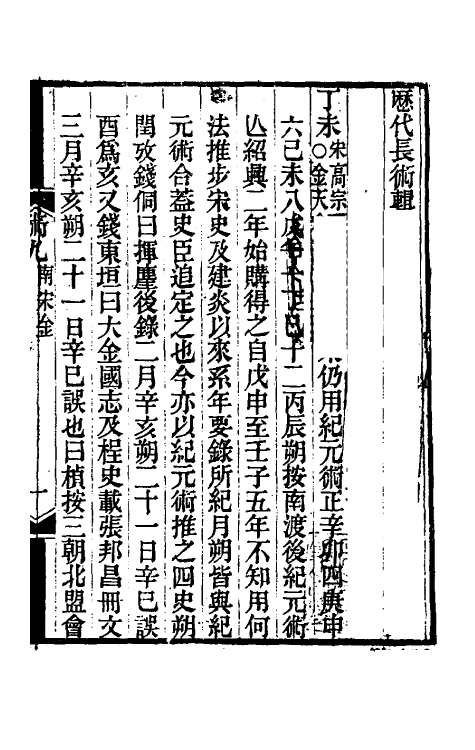 歷代長術輯
丁未宋高宗一〇金天 仍用紀元術正辛卯四庚申
六己未八戊午十 十二丙辰朔按南渡後紀元術
亾紹興二年始購得之自戊申至壬子五年不知用何
法推步宋史及建炎以來系年要錄所紀月朔皆與紀
元術合蓋史臣追定之也今亦以紀元術推之四史朔
閏攷錢侗曰揮麈後錄二月辛亥朔二十一日辛巳誤
酉爲亥又錢東垣曰大金國志及桯史載張邦昌冊文
三月辛亥朔二十一日辛巳誤也曰楨按三朝北盟會
術九 南宋金 一